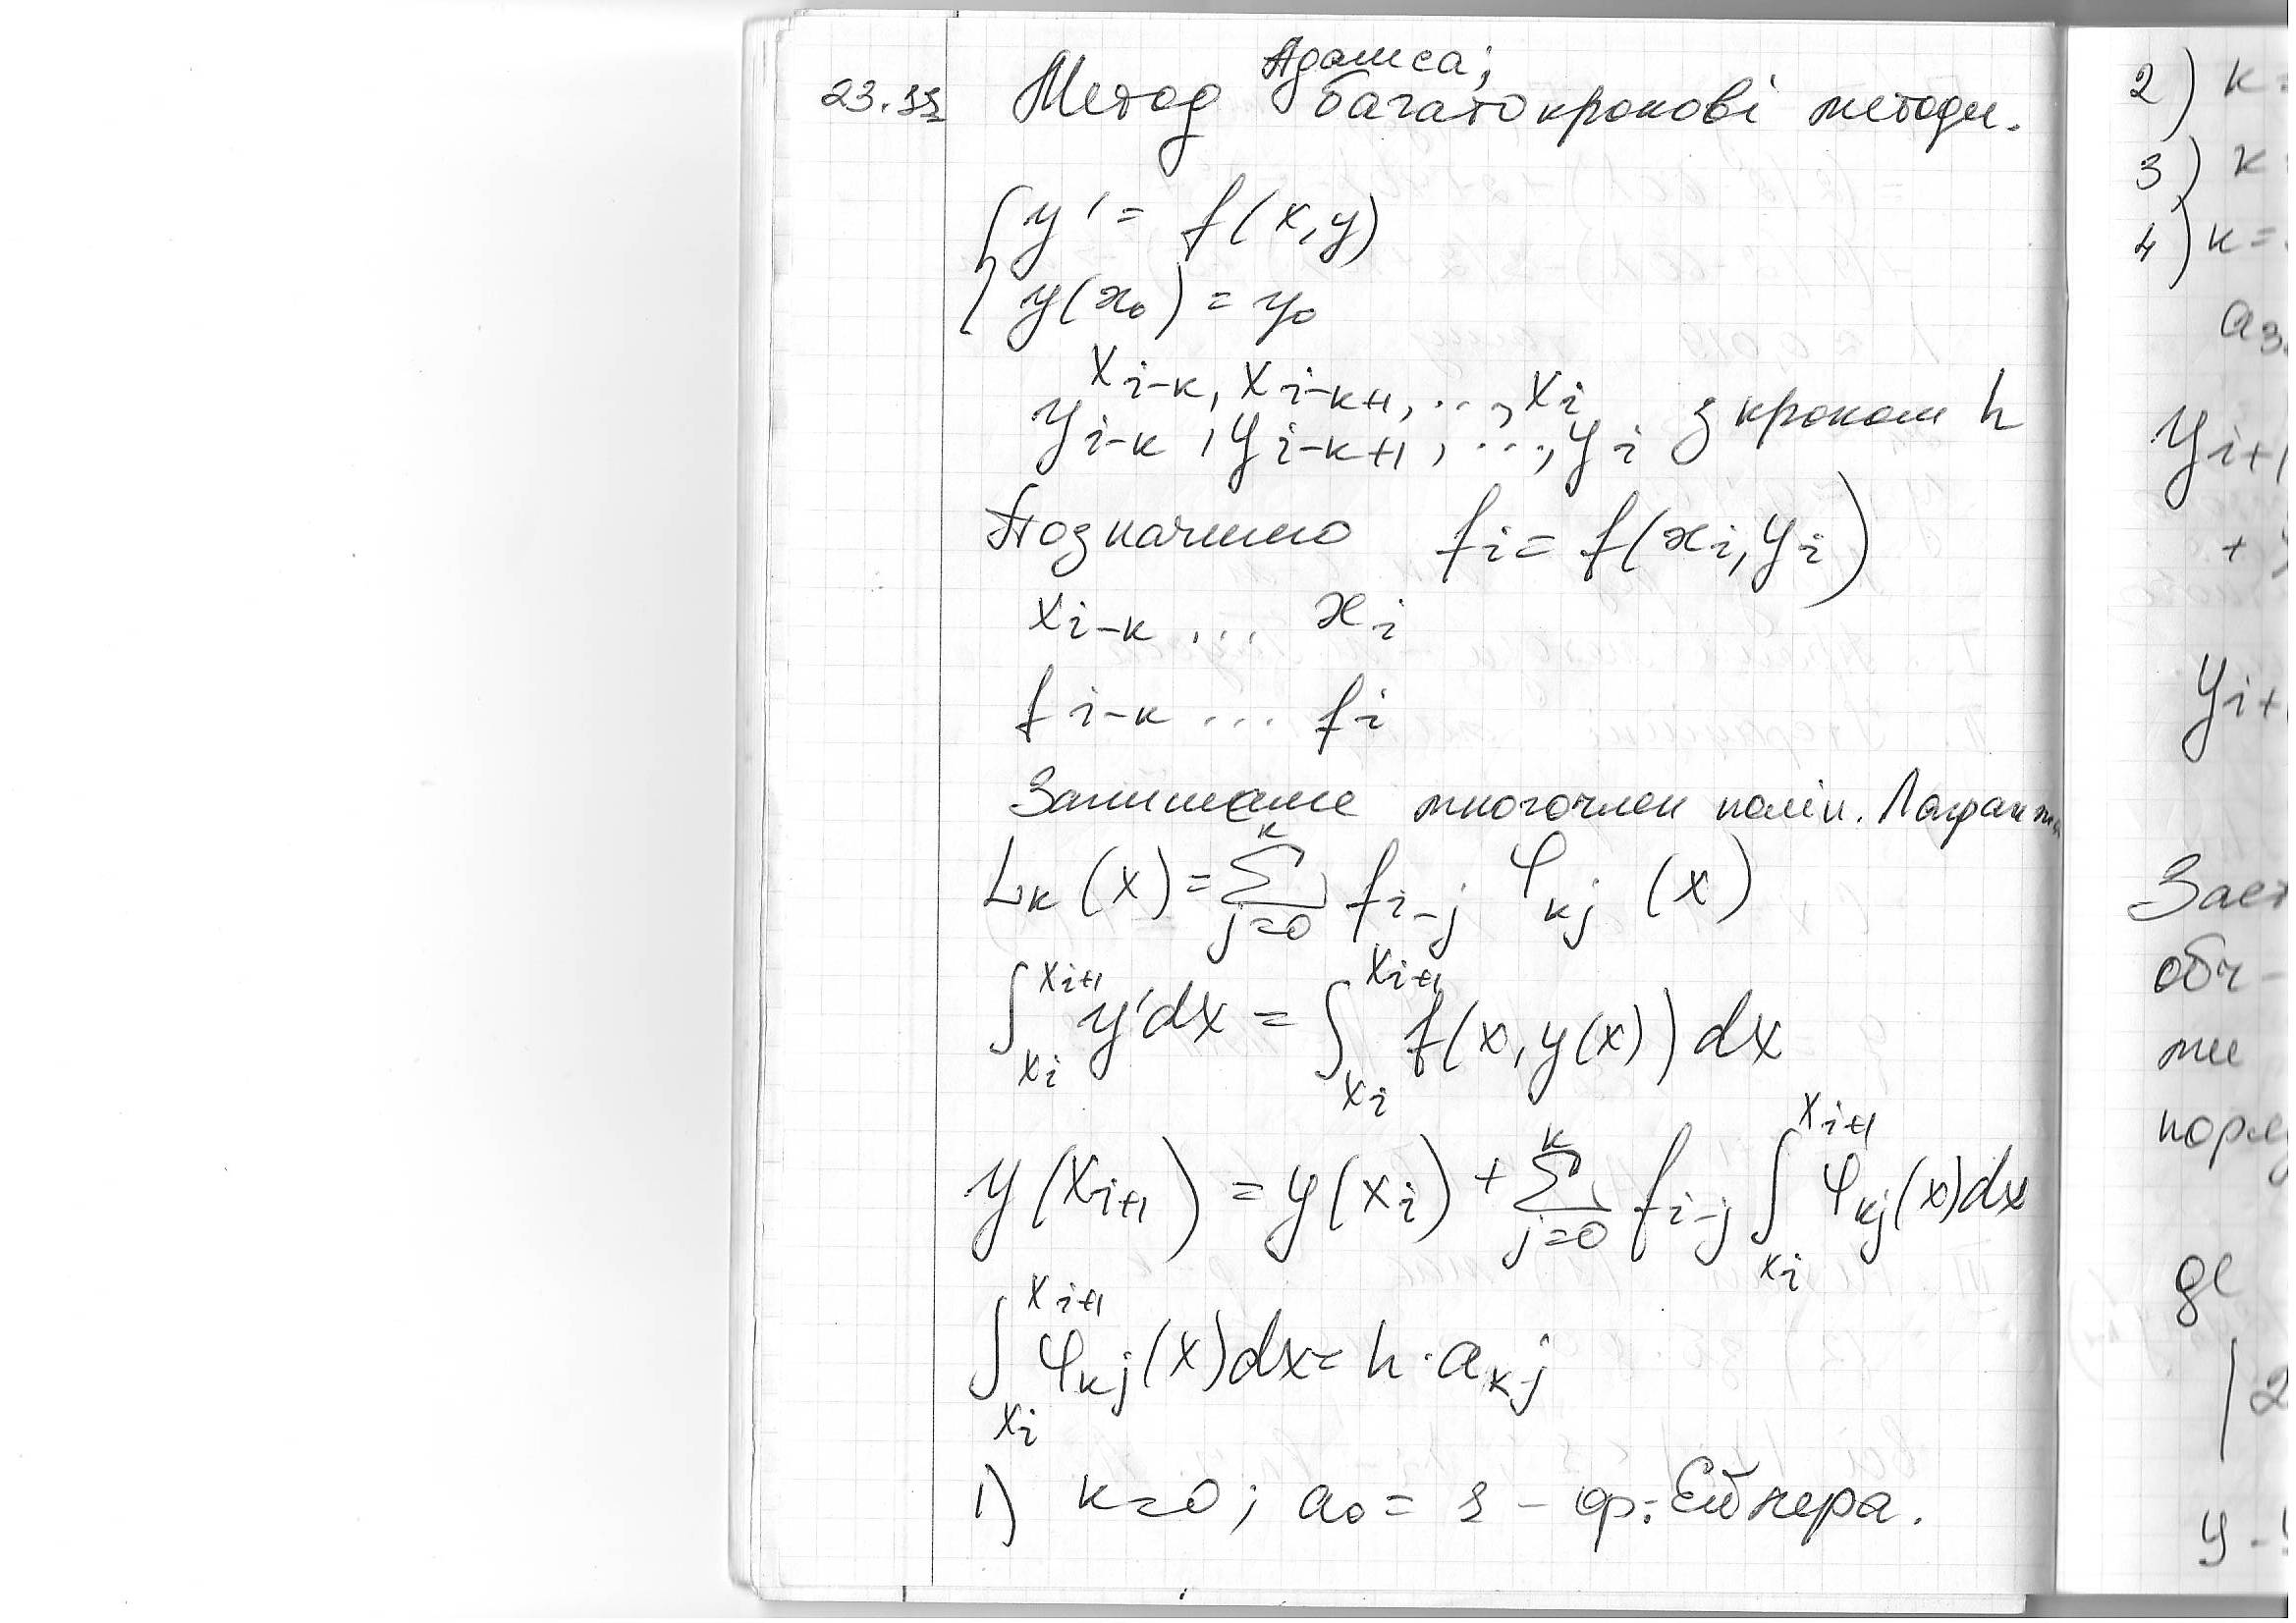 23.11 Метод Адамса; багатокрокові методи.
{ y' = f(x,y)
{ y(x₀) = y₀
x_{i-k}, x_{i-k+1}, ..., x_i
y_{i-k}, y_{i-k+1}, ..., y_i з кроком h
Позначимо f_i = f(x_i, y_i)
x_{i-k} ... x_i
f_{i-k} ... f_i
Запишемо многочлен полін. Лагранжа
L_k(x) = ∑_{j=0}^{k} f_{i-j} φ_{kj}(x)
∫_{x_i}^{x_{i+1}} y'dx = ∫_{x_i}^{x_{i+1}} f(x, y(x))dx
y(x_{i+1}) = y(x_i) + ∑_{j=0}^{k} f_{i-j} ∫_{x_i}^{x_{i+1}} φ_{kj}(x)dx
∫_{x_i}^{x_{i+1}} φ_{kj}(x)dx = h · a_{kj}
1) k=0; a₀ = 1 – ф. Ейлера.
2) k=
3) k
4) k=
a₃
y_{i+1}
+ y
y_{i+1}
Заст
обч-
ми
поря
де
| 2
y -